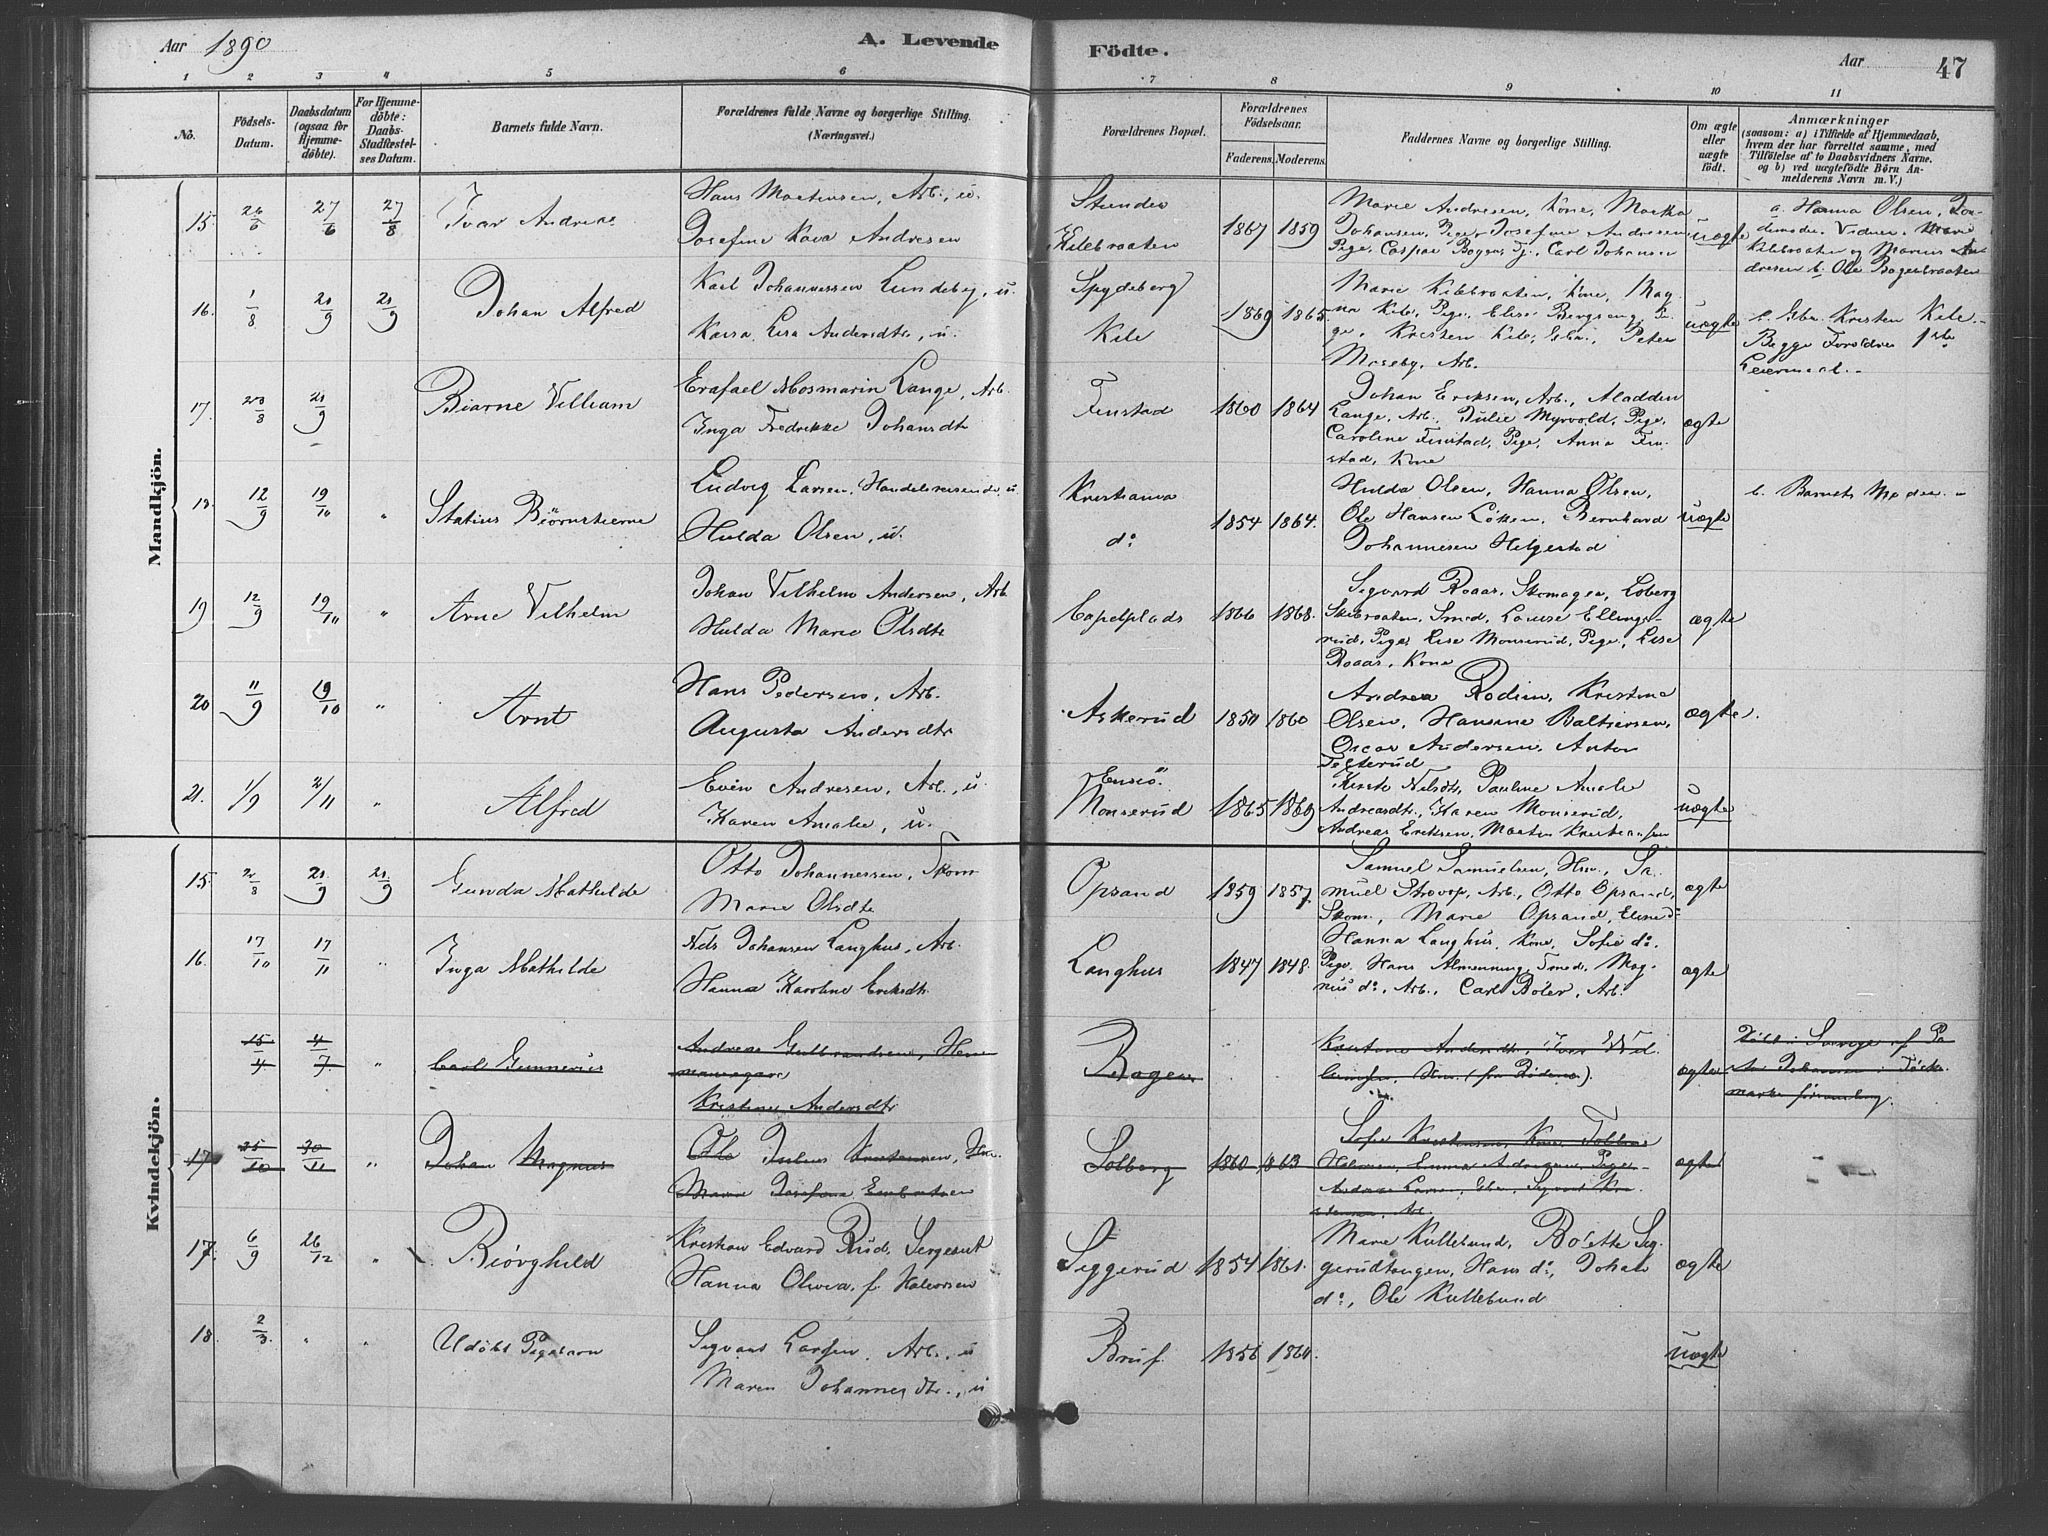 Aar 1890
A. Levende Födte.
Aar
47
1 2 3 4 5 6 7 8 9 10 11
No.
Födsels-Datum.
Daabsdatum (ogsaa for Hjemmedöbte).
For Hjemmedöbte: Daabs-Stadfæstelses Datum.
Barnets fulde Navn.
Forældrenes fulde Navne og borgerlige Stilling. (Næringsvei.)
Forældrenes Bopæl.
Forældrenes Födselsaar.
Faderens. Moderens.
Faddernes Navne og borgerlige Stilling.
Om ægte eller uægte födt.
Anmærkninger
(saasom: a) i Tilfælde af Hjemmedaab, hvem der har forrettet samme, med Tilföielse af to Daabsvidners Navne, og b) ved uægtefödte Börn Anmelderens Navn m. V.)
Mandkjön.
15. 27/6 27/8 Ivar Andreas
Hans Martinsen, Arb., u.
Josefine Kaia Andresen
Stunder
Kilebraaten
1867 1859
Marie Andresen, Kone,
Johansen, Pige, Josefine Andresen,
Pige, Carl Johansen
uægte
a. Hanna Olsen,
Vidner:
Kilebraaten og Maren
dresen b. Ole Bogenbraaten
16. 1/8 21/9 21/9 Johan Alfred
Karl Johannessen Lundeby, u.
Kaisa Lisa Andersdtr, u.
Spydeberg
Kile
1869 1865
Marie Kilebraaten, Kone, Mag-
na Kile, Pige, Elise Bergseng, Pi-
ge, Kristen Kile, Gbr., Peter
Moseby, Arb.
uægte
b. Gbr. Kristen Kile
Begge Foroldre 1ste
Leiermaal.
17. 20/8 21/9 Bjarne Villiam
Lange, Arb.
Inga Fredrikke Johansdtr
Finstad
1860 1864
Johan Eriksen, Arb., Aladden
Lange, Arb., Julie Myrvold, Pige,
Caroline Finstad, Pige, Anna Fin-
stad, Kone
ægte
18. 12/9 19/10 " Statius Biörnstierne
Ludvig Larsen, Handelsreisende, u.
Hulda Olsen, u.
Kristiania
do
1854 1864.
Hulda Olsen, Hanna Olsen,
Ole Hansen Løken, Bernhard
Johannesen Helgestad
uægte
b. Barnets Moder
19 12/9 19/10 " Arne Vilhelm
Johan Vilhelm Andersen, Arb.
Hulda Marie Olsdtr
Capelplads
1866 1868.
Sigvard Roaas, Skomager, Edberg
Skibraaten, Smed, Louise Ellings-
rud, Pige, Lise Monserud, Pige, Lise
Roaas, Kone
ægte
20 11/9 19/10 " Arnt
Hans Pedersen, Arb.
Augusta Andersdtr
Askerud
1850 1860
Andrea Rodim, Kristine
Olsen, Hansine Baltsersen,
Oscar Andersen, Anton
Tegterud
ægte.
21. 1/9 2/11 " Alfred
Even Andresen, Arb., u.
Karen Amalie, u.
Ensiö.
Monserud
1865 1869
Kirste Nilsdtr, Pauline Amalie
Andreasdtr, Karen Monserud,
Andreas Eriksen, Martin Kristiansen
uægte
Kvindekjön.
15. 2/8 21/9 21/9 Gunda Mathilde
Otto Johannessen, Skom
Marie Olsdtr
Opsand
1859 1857.
Samuel Samuelsen, Hm., Sa-
muel Strorop, Arb., Otto Opsand,
Skom., Marie Opsand, Eline do
ægte
16. 17/10 17/11 " Inga Mathilde
Nils Johansen Langhus, Arb.
Hanna Karoline Eriksdtr.
Langhus
1847 1848.
Hanna Langhus, Kone, Sofie do.
Pige, Hans Almenning, Smed, Mag-
nus do., Arb., Carl Böler, Arb.
ægte
15/4 4/7 " Carl Gunnerius
Andreas Gulbrandsen,
Kristine Andersdtr
Bogen
Kristine Andersdtr,
ægte
17 25/10 30/11 " Johan Magnus
Ole Julius Kristiansen,
Marie Josefine
Solberg
1860. 1863
Sofie Kristensen, Kone,
Halvorsen, Emma Andresen, Pige,
Andreas Larsen, Gbr., Sigvart Kri-
stensen, Arb.
ægte
17. 6/9 26/12 " Biörghild
Kristian Edvard Rud, Sergeant
Hanna Olivia, f. Halvorsen
Siggerud
1854 1861.
Marie Kullebund, Bolette Sig-
gerudtangen, Hans do., Johan
do., Ole Kullebund
ægte
18. 2/3 " " Udöbt Pigebarn
Sigvart Larsen, Arb., u
Maren Johannesdtr., u
Bru f.
1856 1860.
uægte